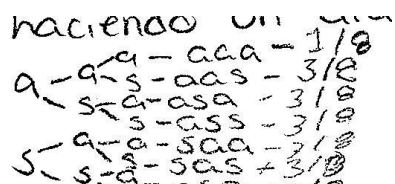 haciendo un
a - aaa - 1/8
a - a - s - aas - 3/8
s - a - asa - 3/8
s - ass - 3/8
a - a - saa - 3/8
s - s - sas - 3/8
s - a -